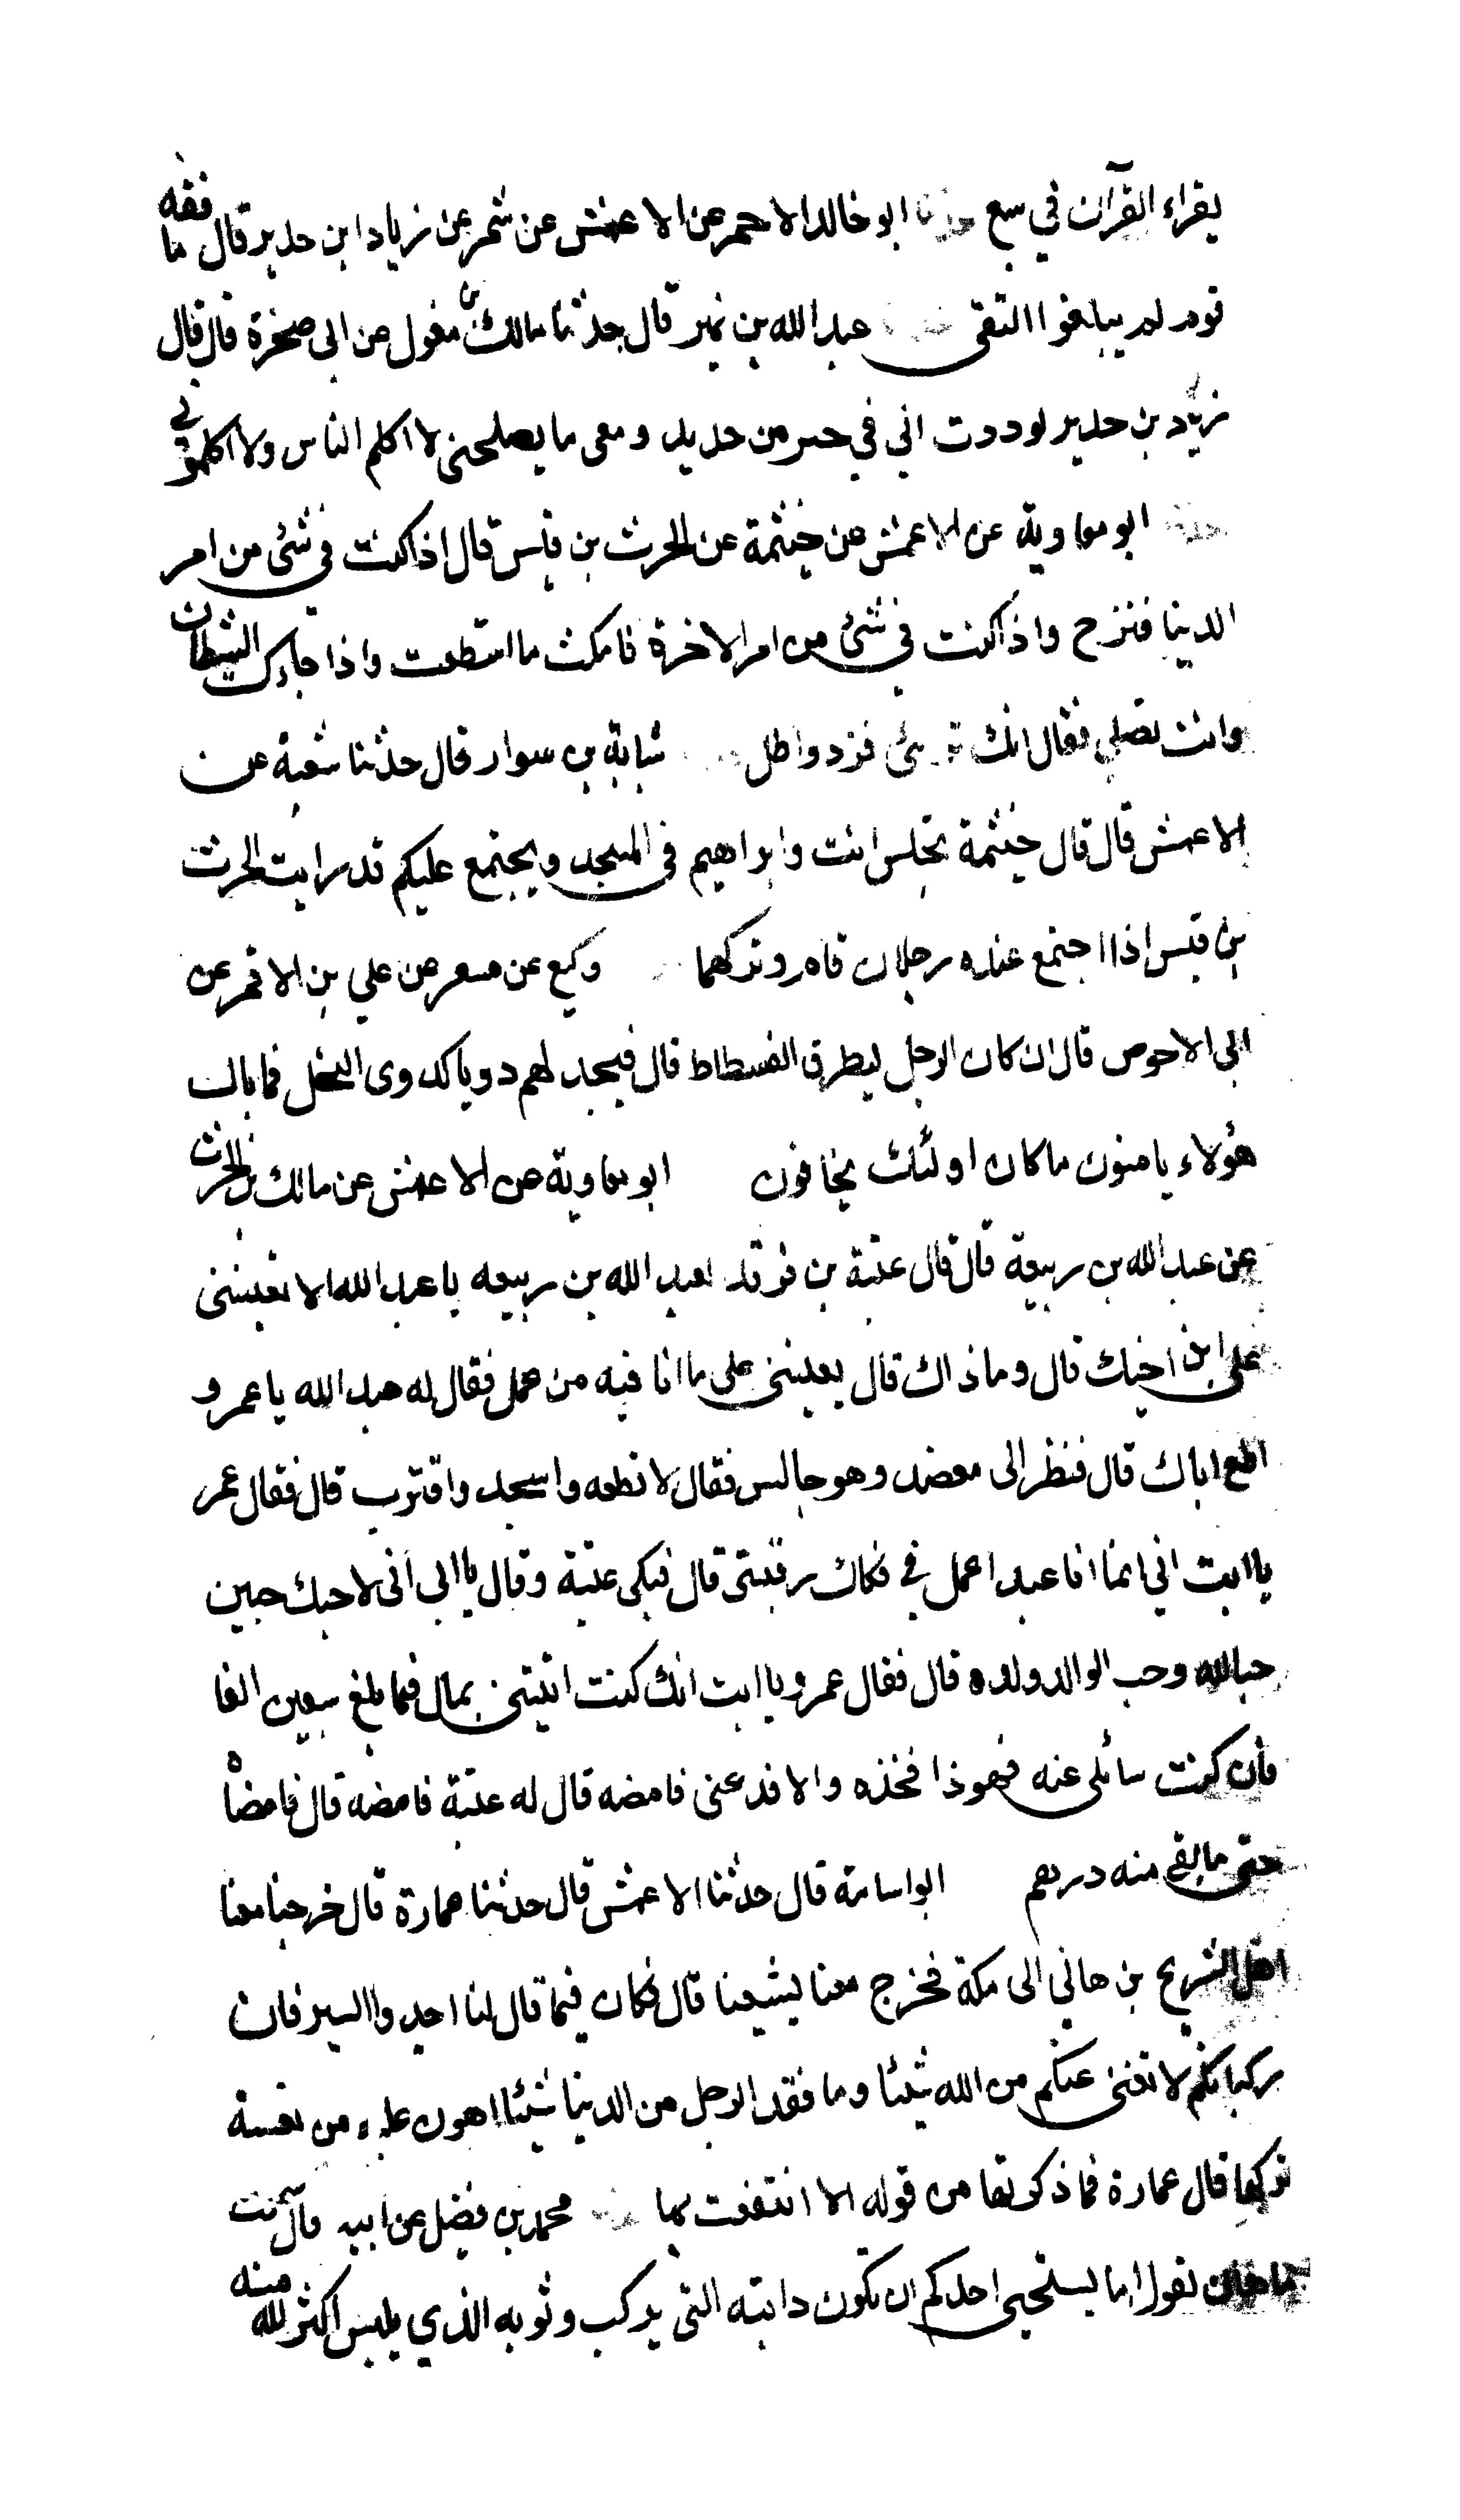 يقراء القرآن في سبع حدثنا ابو خالد الاحمر عن الاعمش عن شمر عن زياد ابن حدير قال ما فقه
قوم لم يبلغوا التقى عبد الله بن نمير قال حدثنا مالك بن مغول عن ابى صخرة قال قال
زياد بن حدير لوددت اني في حير من حديد ومعى ما يصلحنى لا اكلم الناس ولا اكلموني
حدثنا ابو معاوية عن الاعمش عن خيثمة عن الحرث بن قيس قال اذا كنت في شئ من امر
الدينا فترح واذا كنت في شئ من امر الاخرة فامكث ما استطعت واذا جاءك الشيطان
وانت تصلي فقال انك ترئى فزد واطل شبابة بن سوار قال حدثنا شعبة عن
الاعمش قال قال خيثمة تجلس انت وابراهيم في المسجد ويجتمع عليكم قد رايت الحرث
بن قيس اذا اجتمع عنده رجلان قام وتركهما وكيع عن مسعر عن علي بن الاقمر عن
ابى الاحوص قال ان كان الرجل ليطرق الفسطاط قال فيجد لهم دويا كدوى النحل فما بال
هؤلاء يامنون ما كان اولئك يخافون ابو معاوية عن الاعمش عن مالك بن الحرث
عن عبد الله بن ربيعة قال قال عتبة بن فرقد لعبد الله بن ربيعه يا عبد الله الا تعيننى
على ابن اخيك قال وما ذاك قال يعيننى على ما انا فيه من عمل فقال له عبد الله يا عمرو
اطع اباك قال فنظر الى معضد وهو جالس فقال لا تطعه واسجد واقترب قال فقال عمر
يا ابت اني انما انا عبد اعمل في فكاك رقبتى قال فبكى عتبة وقال يا ابى انى لاحبك حبين
حبا لله وحب الوالد ولده قال فقال عمرو يا ابت انك كنت اتيتنى بمال فما بلغ سبعين الفا
فان كنت سائلى عنه فهو ذا فخذه والا فدعنى فامضه قال له عتبة فامضه قال فامضاه
حتى ما بقى منه درهم ابو اسامة قال حدثنا الاعمش قال حدثنا عمارة قال خرجنا معنا
اهل لشريح بن هاني الى مكة فخرج معنا يشيعنا قال فكان فيما قال لنا اجدوا السير فان
ركبانكم لا تغنى عنكم من الله شيئا وما فقد الرجل من الدينا شيئا اهون عليه من نفسة
تركها قال عمارة فما ذكرتها من قوله الا انتفعت بها محمد بن فضيل عن ابيه قال كنت
ماهان يقول اما يستحيى احدكم ان تكون دابته التى يركب وثوبه الذي يلبس اكثر لله منه